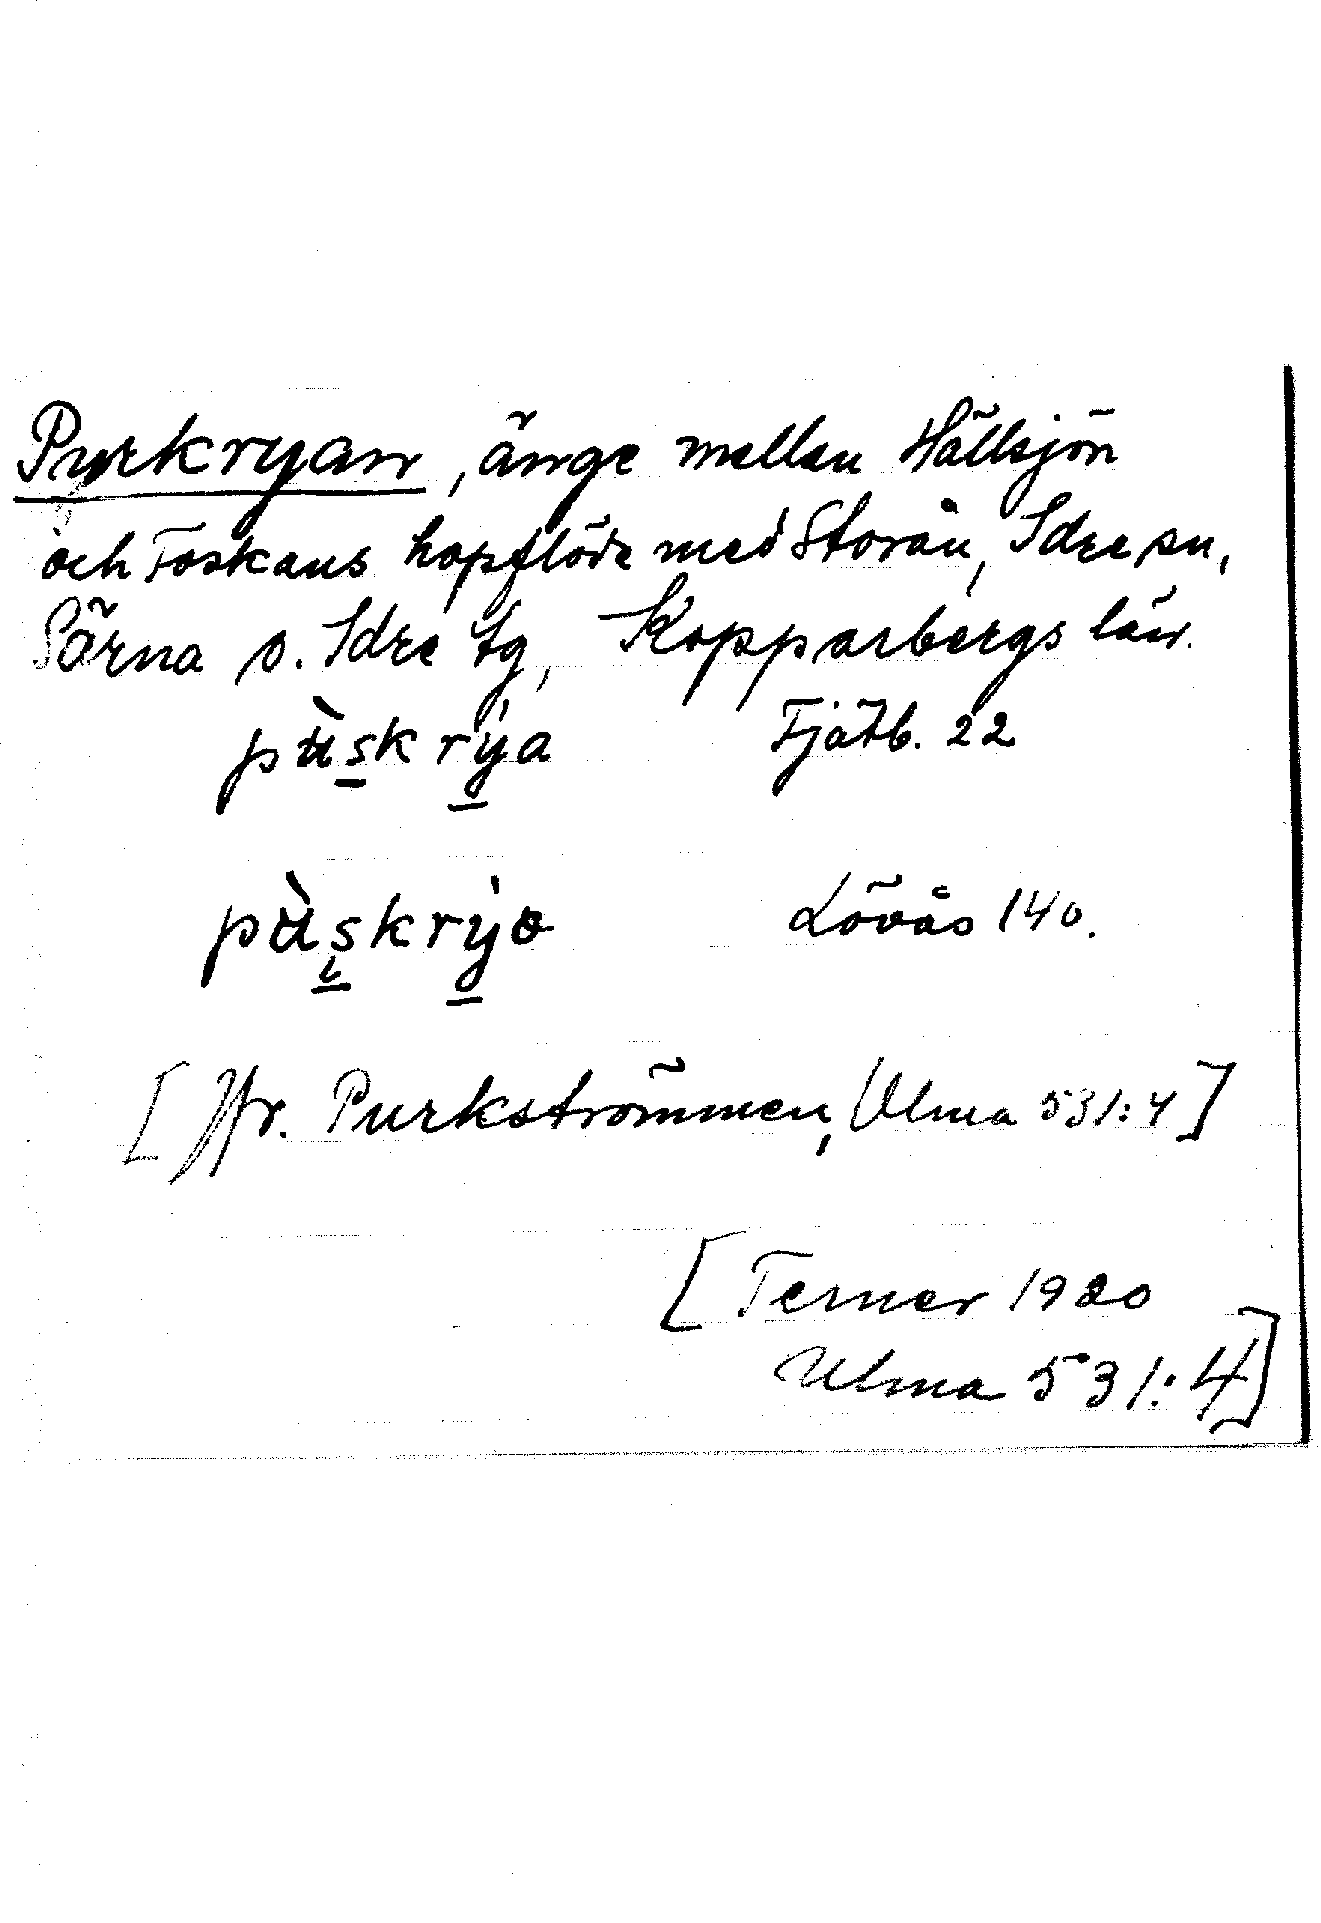 Purkryan, änge mellan Hällsjön
och Foskans hopflöde med Storån, Idre sn,
Särna o. Idre tg, Kopparbergs län.
pùs̱kry̱̍a Fjätb. 22
pùs̱kry̱̍ɷ Lövås 140.
[Jfr. Purkströmmen, Ulma 531:4]
[Terner 1920
Ulma 531:4]